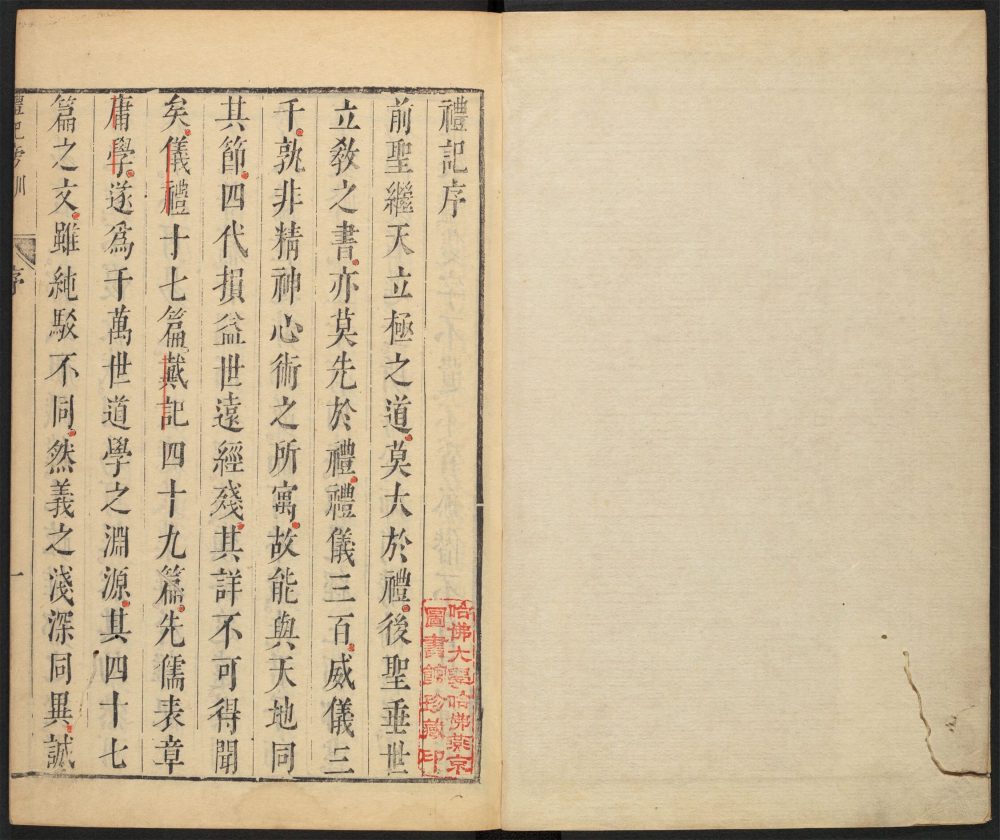 禮記序
前聖繼天立極之道莫大於禮後聖垂世
立敎之書亦莫先於禮禮儀三百威儀三
千孰非精神心術之所寓故能與天地同
其節四代損益世遠經殘其詳不可得聞
矣儀禮十七篇戴記四十九篇先儒表章
庸學遂爲千萬世道學之淵源其四十七
篇之文雖純駁不同然義之淺深同異誠
序
一
哈佛大學哈佛燕京
圖書館珍藏印